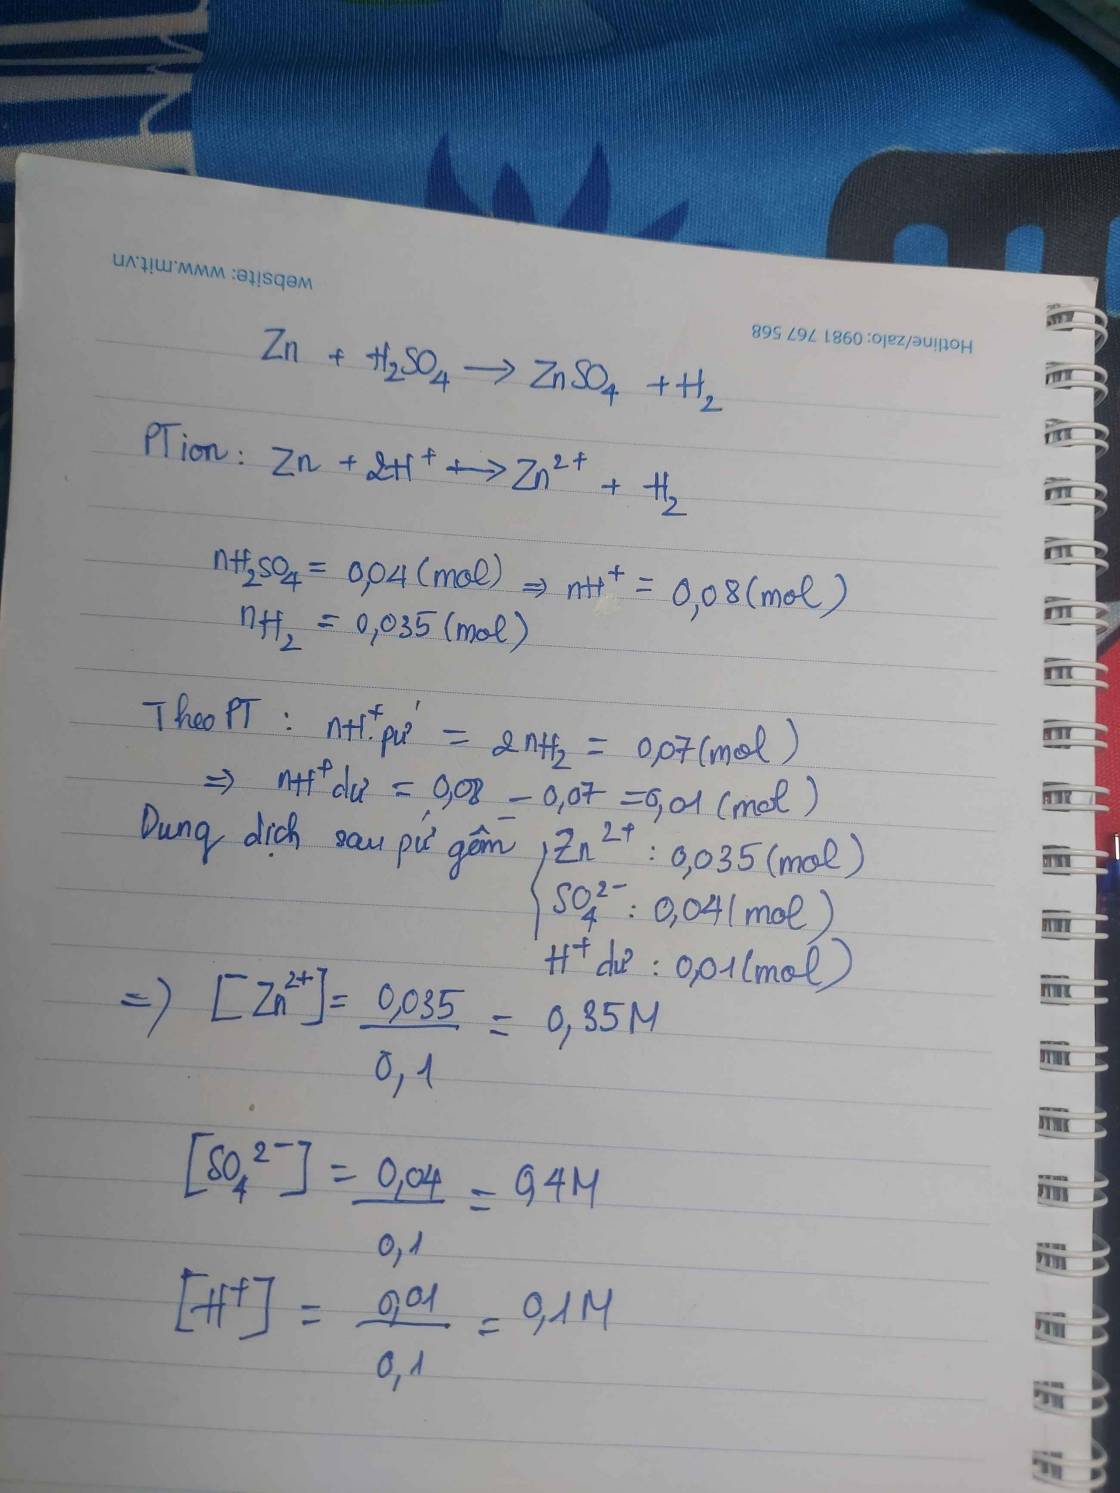 website: www.mit.vn
Hotline/zalo: 0981 767 568
Zn + H₂SO₄ → ZnSO₄ + H₂
PT ion: Zn + 2H⁺ → Zn²⁺ + H₂
nH₂SO₄ = 0,04 (mol) ⇒ nH⁺ = 0,08 (mol)
nH₂ = 0,035 (mol)
Theo PT: nH⁺pứ = 2nH₂ = 0,07 (mol)
⇒ nH⁺dư = 0,08 - 0,07 = 0,01 (mol)
Dung dịch sau pứ gồm { Zn²⁺: 0,035 (mol)
SO₄²⁻: 0,04 (mol)
H⁺ dư: 0,01 (mol)
⇒ [Zn²⁺] = 0,035 / 0,1 = 0,35M
[SO₄²⁻] = 0,04 / 0,1 = 0,4M
[H⁺] = 0,01 / 0,1 = 0,1M